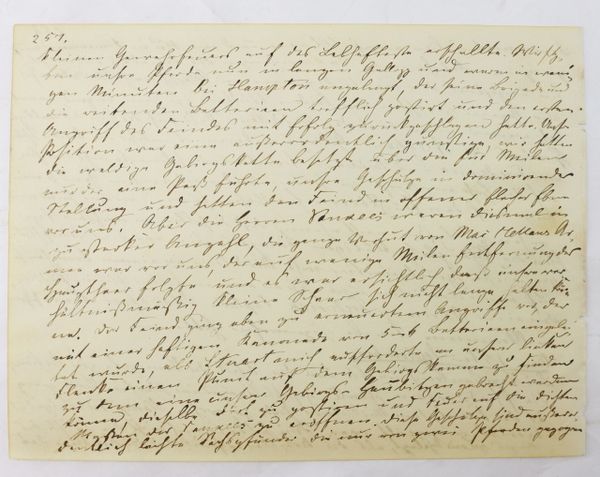 251.
kleinen Gewehrfeuers auf das Lebhafteste erschallte. Wir setz-
ten unsre Pferde nun in langen Galopp und waren in weni-
gen Minuten bei Hampton angelangt, der seine Brigade und
die reitenden Batterieen trefflich postirt und den ersten
Angriff des Feindes mit Erfolg zurückgeschlagen hatte. Unsre
Position war eine außerordentlich günstige, wir hatten
die waldige Gebirgskette besetzt über die fünf Meilen
eine Paß führte, unsre Geschütze in dominirender
Stellung und hatten den Feind in offener flacher Ebene
vor uns. Aber die Herren Yankees waren diesmal in
zu starker Anzahl, die ganze Vorhut von Mac Clellans Ar-
mee war vor uns, der auf wenige Meilen Entfernung das
Hauptheer folgte und es war ersichtlich daß unsre ver-
hältnißmäßig kleine Schaar sich nicht lange halten kön-
ne. Der Feind ging eben zu erneuertem Angriffe vor, der
mit einer heftigen Kanonade von 5-6 Batterieen eingelei-
tet wurde, als Stuart mich aufforderte an unserer linken
Flanke einen Punct auf dem Gebirgskamme zu finden
zu dem eine unsrer Gebirgs-Haubitzen gebracht werden
könne, dieselbe dort zu postiren und Feuer auf die dichten
Massen der Yankees zu eröffnen. Diese Geschütze sind außeror-
dentlich leichte Sechspfünder die nur von zwei Pferden gezogen